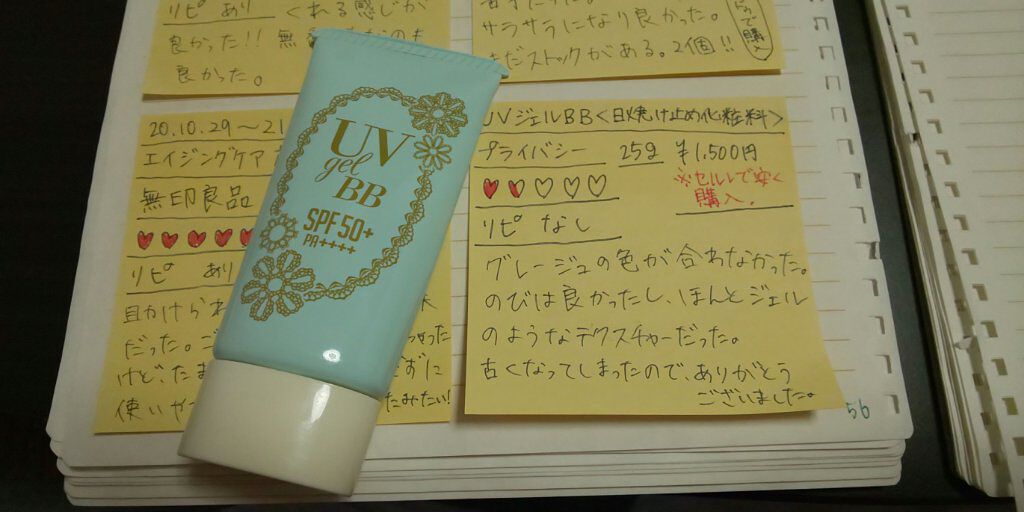 リピ あり くれる感じが
良かった!! 無
良かった。
サラサラになり良かった。
まだストックがある。2個!!
で購入
20.10.29~21
エイジングケア
無印良品
リピ あり
だった。
けど、たま
ずに
使いや
たみたい!
UV
gel
BB
SPF50+
PA++++
UVジェルBB<日焼け止め化粧料>
プライバシー 25g ¥1.500円
※セルレで安く
購入.
リピ なし
グレージュの色が合わなかった。
のびは良かったし、ほんとジェル
のようなテクスチャーだった。
古くなってしまったので、ありがとう
ございました。
56